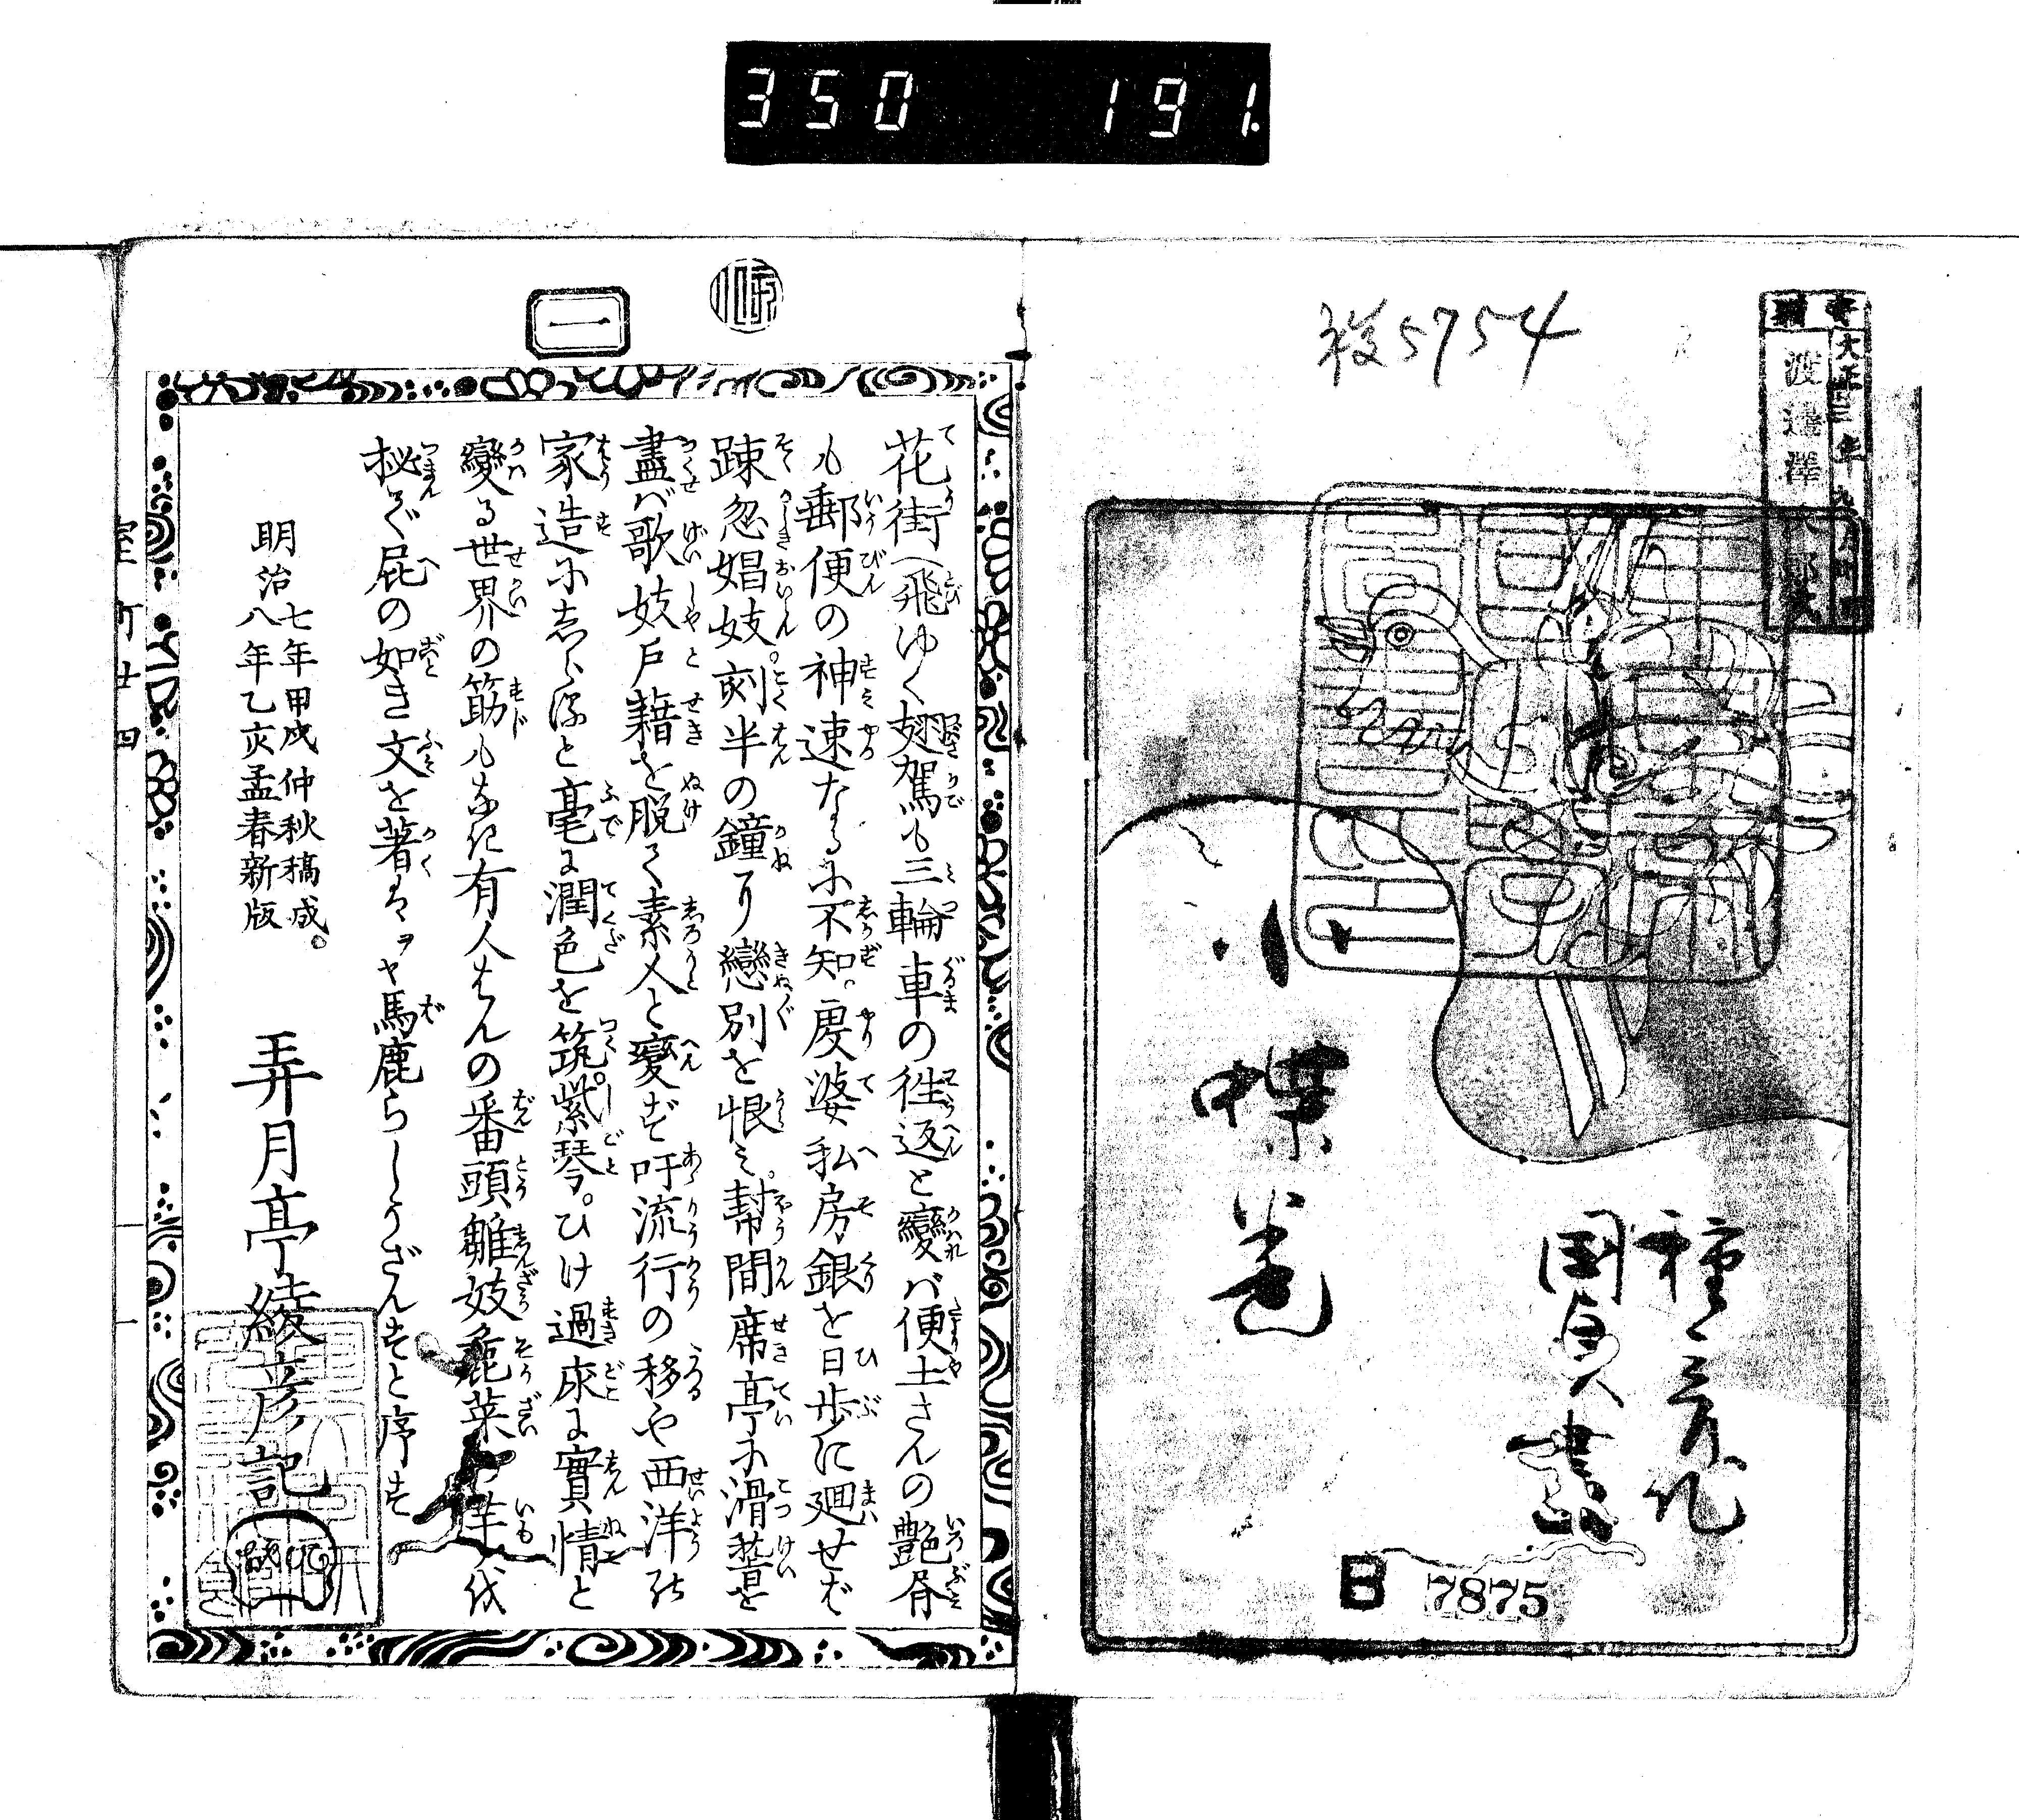 350 191.
役5754
大正三年九月
渡邊澤
種彦作
国貞畫
小蝶
B 7875
一
花街へ飛ゆく翅駕も三輪車の徃返と變れバ便土さんの艶屑
も郵便の神速なるに不知。廋婆私房銀を日歩に廻せば
踈忽娼妓。刻半の鐘より戀別を恨ミ。幇間席亭に滑𥡴を
盡バ歌妓戸藉を脱て素人と變ず吁流行の移や西洋
家造に志らふと毫に潤色を筑。紫琴。ひけ過床に實情と
變る世界の筋もなに有人さんの番頭雛妓麁菜
拯ぐ屁の如き文を著はすヲヤ馬鹿らしうざんすと序す
明治七年甲戌仲秋稿成。
八年乙亥孟春新版
弄月亭綾彦記
室町廿四
一